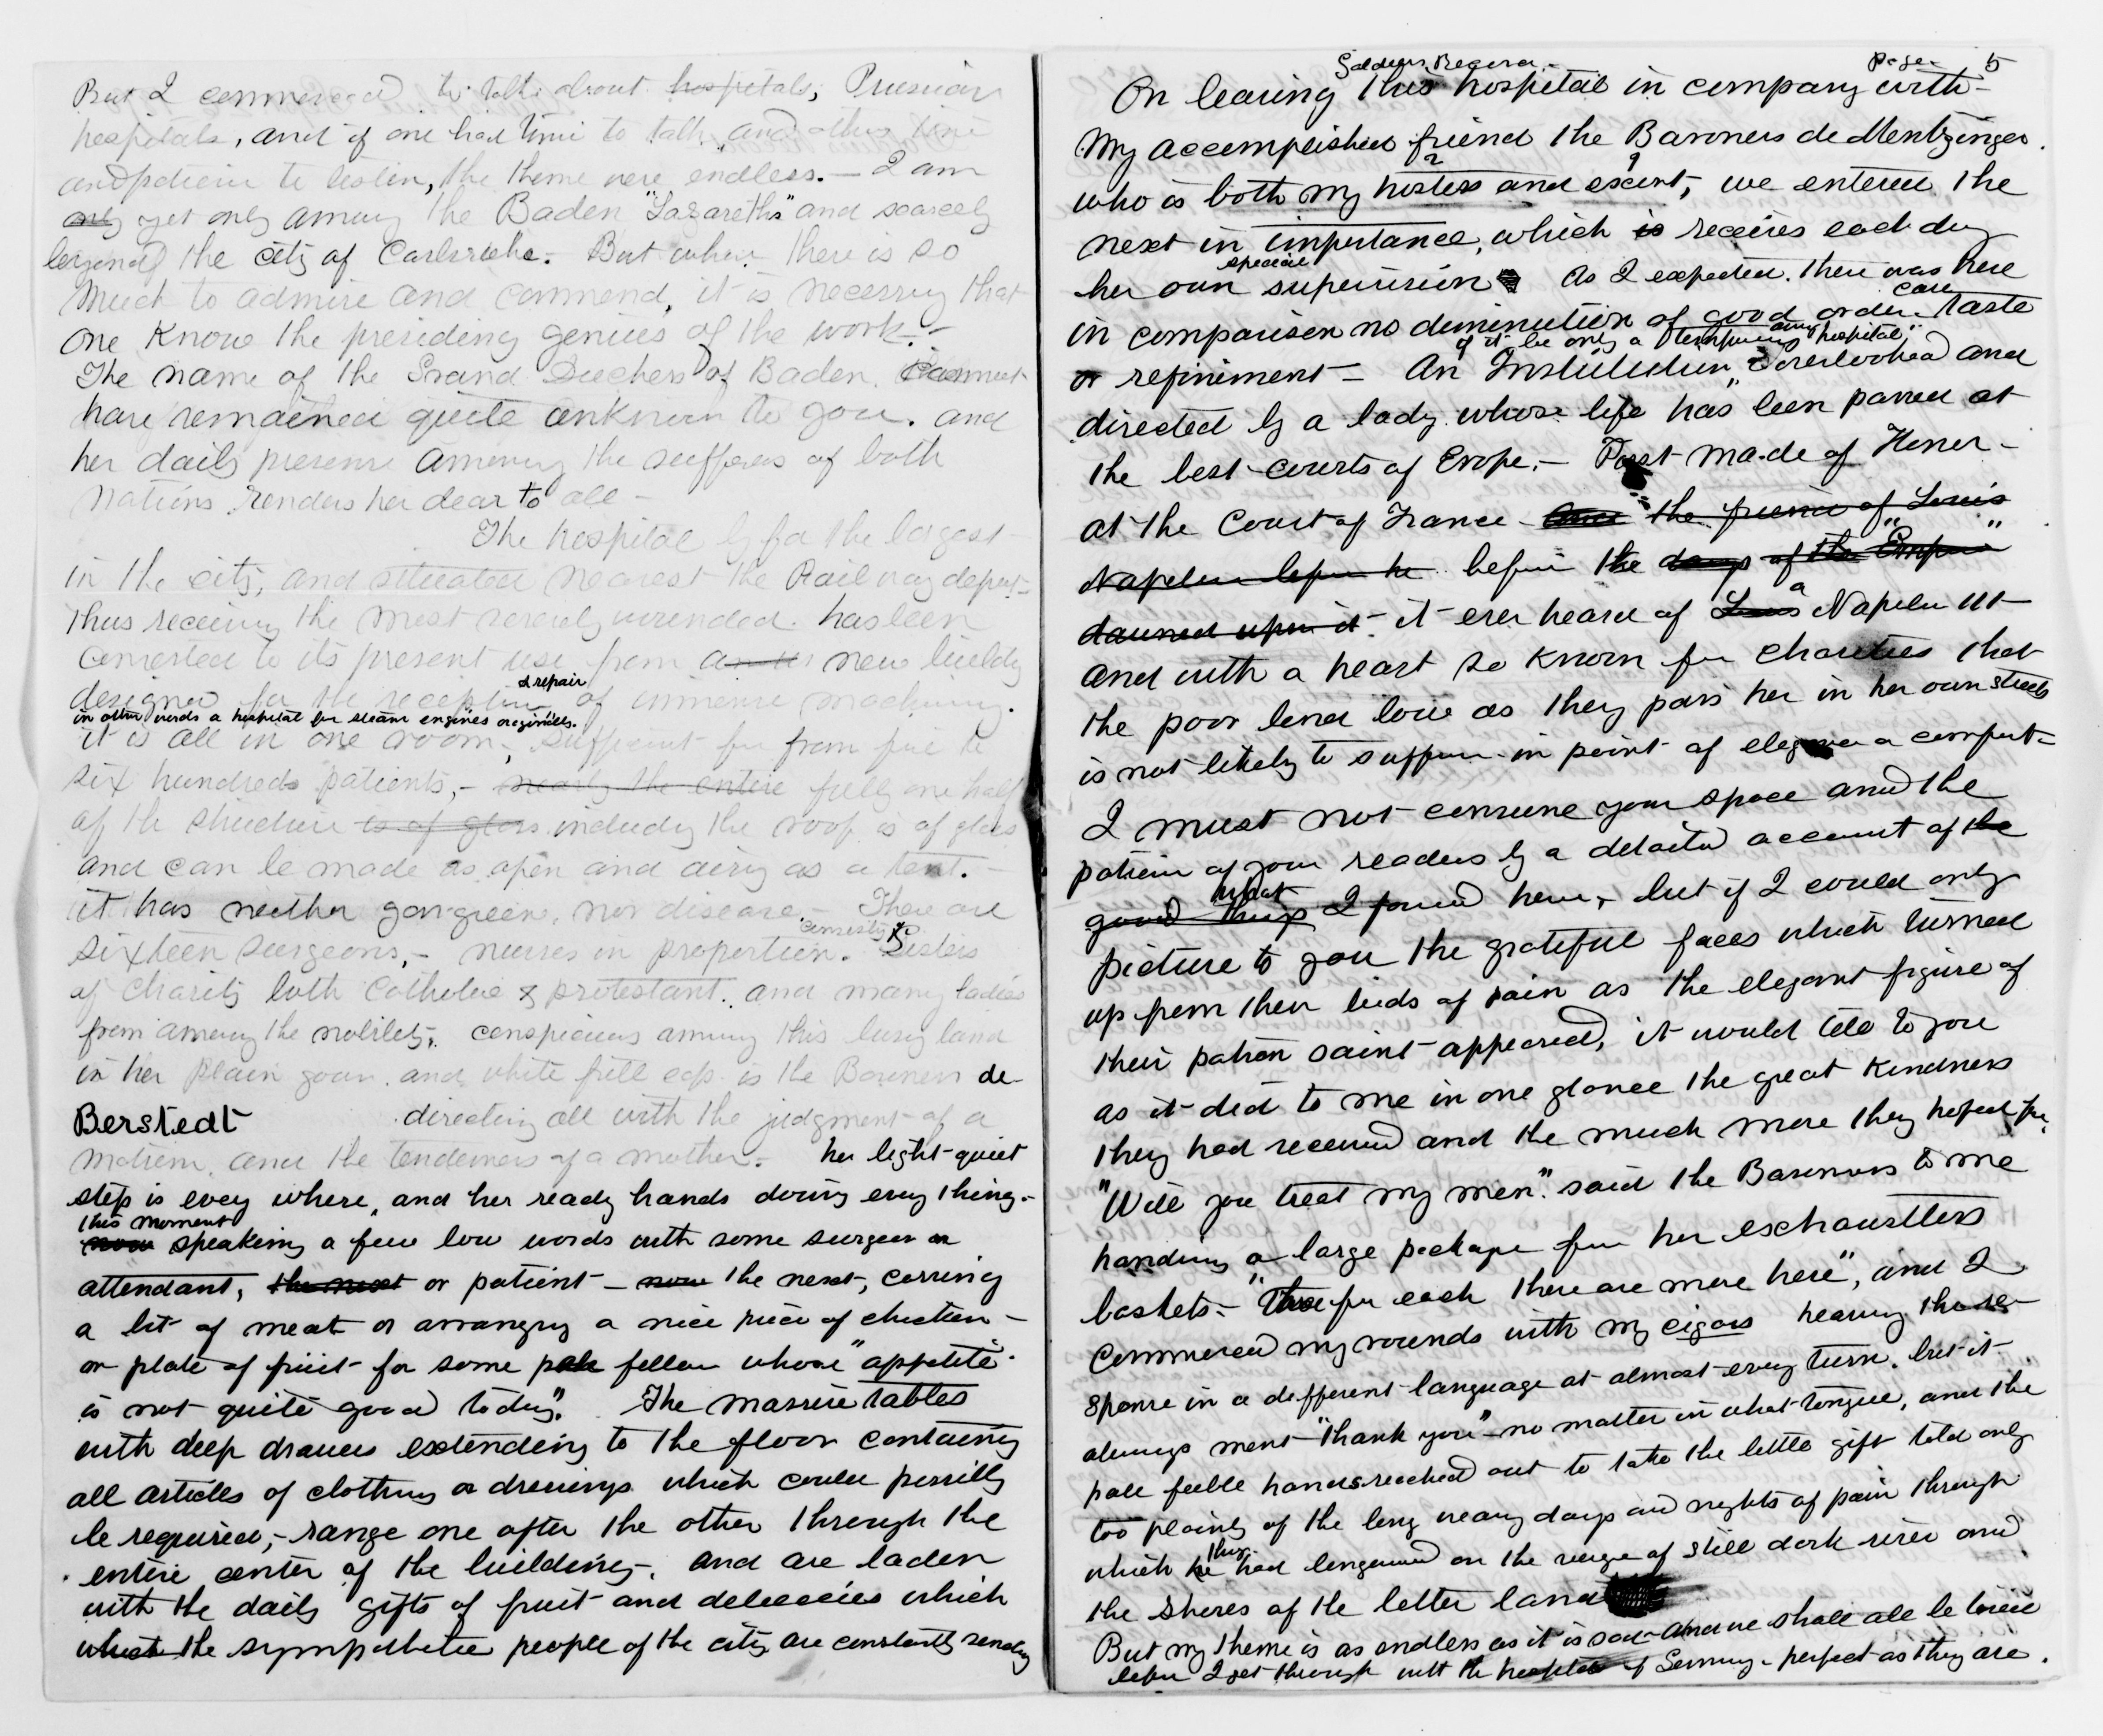 But I commenced to talk about hospitals, Prussian
hospitals, and if one had time to talk, and others time
and patience to listen, the theme were endless. — I am
only yet only among the Baden "Lazareths" and scarcely
beyond the city of Carlsruhe. But when there is so
much to admire and commend, it is necessary that
one know the presiding genius of the work. —
The name of the Grand Duchess of Baden, cannot
have remained quite unknown to you. and
her daily presence among the sufferers of both
nations renders her dear to all —
The hospital by far the largest
in the city, and situated nearest the Railway depot —
thus receiving the most severely wounded. has been
converted to its present use from a new building
designed for the reception & repair of immense machinery.
in other words a hospital for steam engines originally.
it is all in one room, sufficient for from five to
six hundreds patients, — nearly the entire fully one half
of the structure is of glass including the roof is of glass
and can be made as open and airy as a tent. —
it has neither gangreen, nor disease. — There are
sixteen surgeons, — nurses in proportion. consisting of Sisters
of Charity both Catholic & protestant. and many ladies
from among the nobility. conspicuous among this busy band
in her plain gown. and white frill cap is the Baroness de
Berstedt directing all with the judgment of a
matron. and the tenderness of a mother. — her light quiet
step is every where, and her ready hands doing every thing. —
this moment
now speaking a few low words with some surgeon or
attendant, the next or patient — now the next, carrying
a bit of meat or arranging a nice piece of chicken —
or plate of fruit for some pale fellow whose "appetite
is not quite good today". The massive tables
with deep drawers extending to the floor containing
all articles of clothing or dressings which could possibly
be required, — range one after the other through the
entire center of the building —. and are laden
with the daily gifts of fruit and delicacies which
which the sympathetic people of the city are constantly sending
Page 5
On leaving this hospital in company with —
My accomplished friend the Baroness de Mentzinger.
who is both my hostess and escort, we entered the
next in importance, which is receives each day
her own special supervision As I expected. there was here
in comparison no diminution of good order care taste
or refinement — An Institution if it be only a temporary army hospital," overlooked and
directed by a lady whose life has been passed at
the best courts of Erope. — Past made of Honor —
at the Court of France — the friend of Louis
Napoleon before he before the days of the "Empire"
dawned upon it it ever heard of Louis a Napoleon III
and with a heart so known for charities that
the poor bend low as they pass her in her own streets
is not likely to suffer in point of elegance or comfort —
I must not consume your space and the
patience of your readers by a detailed account of the
good things what I found here, but if I could only
picture to you the grateful faces which turned
up from their beds of pain as the elegant figure of
their patron saint appeared, it would tell to you
as it did to me in one glance the great kindness
they had received and the much more they hoped for.
"Will you treat my men". said the Baroness to me
handing a large package from her exhaustless
baskets — "Three for each there are more here", and I
commenced my rounds with my cigars hearing the re-
sponse in a different language at almost every turn. but it
always ment "thank you" no matter in what tongue, and the
pale feeble hands reached out to take the little gift told only
too plainly of the long weary days and nights of pain through
which he they had lengered on the verge of still dark river and
the shores of the better land
But my theme is as endless as it is sad and we shall all be tired
before I get through with the hospitals of Germany — perfect as they are.